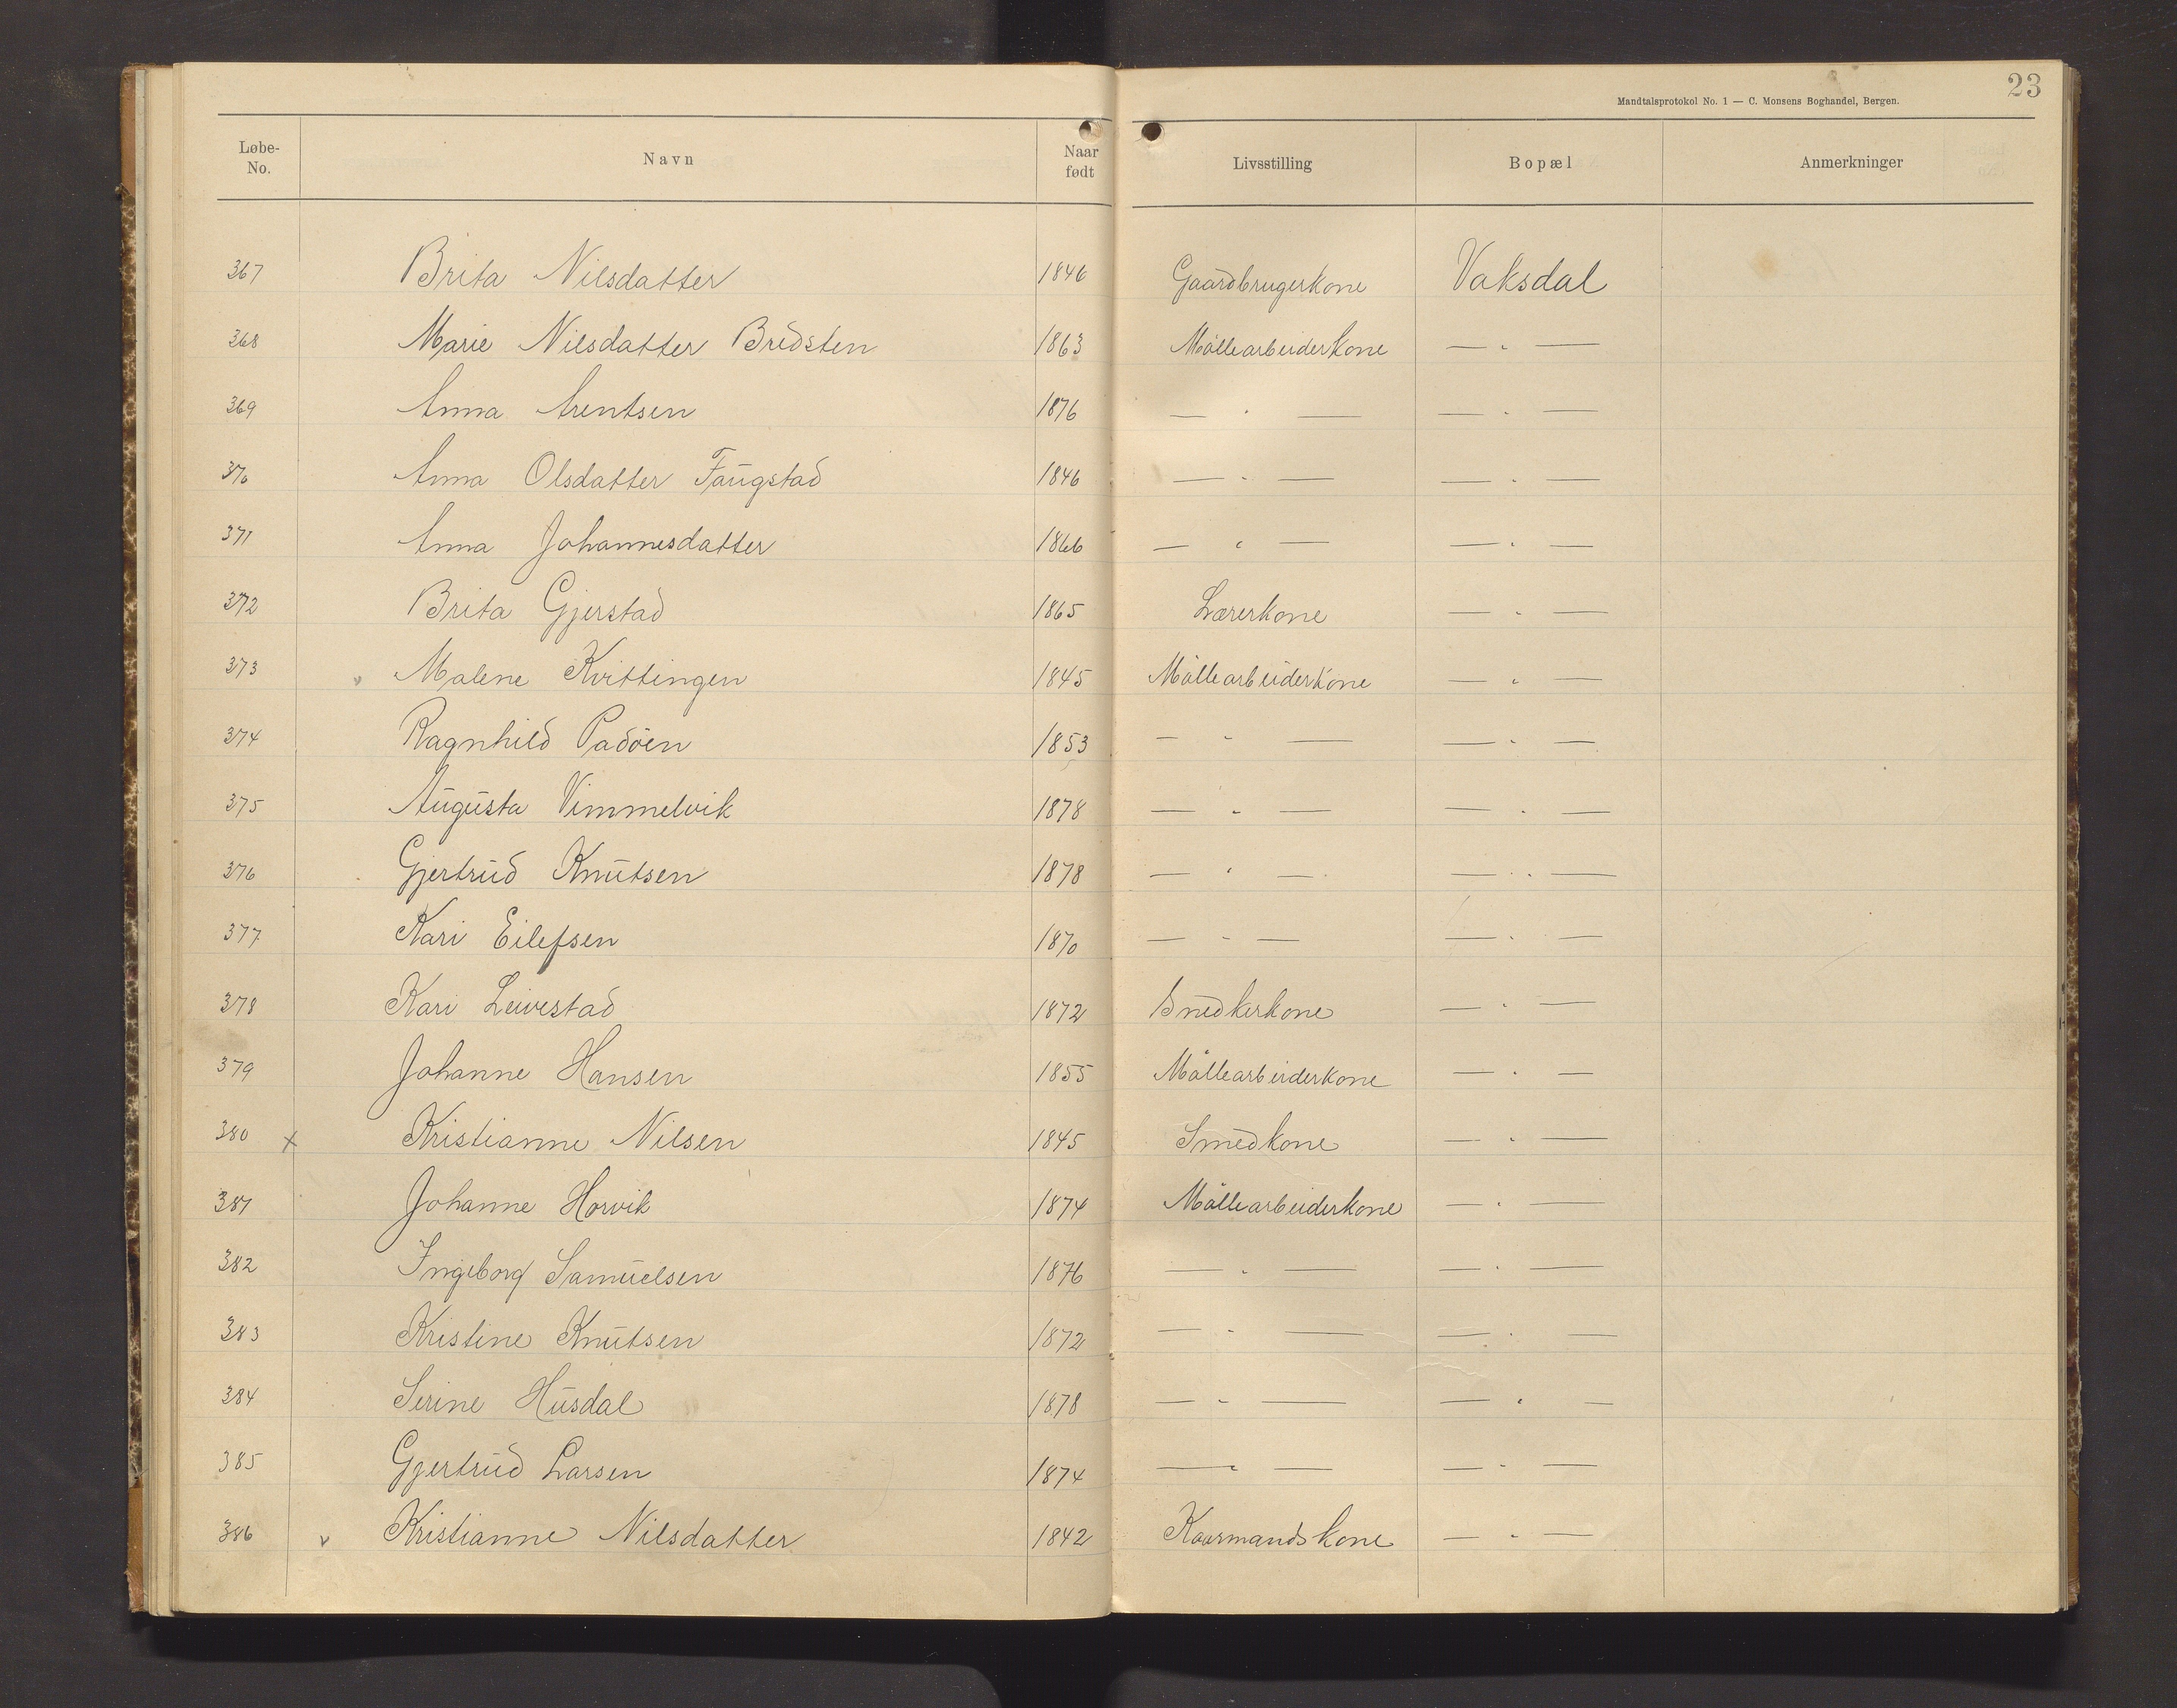 23
Mandtalsprotokol No. 1 — C. Monsens Boghandel, Bergen.
Løbe-No. Navn Naar født Livsstilling Bopæl Anmerkninger
367 Brita Nilsdatter 1846 Gaardbrugerkone Vaksdal
368 Marie Nilsdatter Bredsten 1863 Möllearbeiderkone — " —
369 Anna Arentsen 1876 — " — — " —
370 Anna Olsdatter Faugstad 1846 — " — — " —
371 Anna Johannesdatter 1866 — " — — " —
372 Brita Gjerstad 1865 Lærerkone — " —
373 v Malene Kvittingen 1845 Möllearbeiderkone — " —
374 Ragnhild Padöen 1853 — " — — " —
375 Augusta Vimmelvik 1878 — " — — " —
376 Gjertrud Knutsen 1878 — " — — " —
377 Kari Eilefsen 1870 — " — — " —
378 Kari Leivestad 1872 Snedkerkone — " —
379 Johanne Hansen 1855 Möllearbeiderkone — " —
380 x Kristianne Nilsen 1845 Smedkone — " —
381 Johanne Horvik 1874 Möllearbeiderkone — " —
382 Ingeborg Samuelsen 1876 — " — — " —
383 Kristine Knutsen 1872 — " — — " —
384 Serine Husdal 1878 — " — — " —
385 Gjertrud Larsen 1874 — " — — " —
386 v Kristianne Nilsdatter 1842 Kaarmandskone — " —